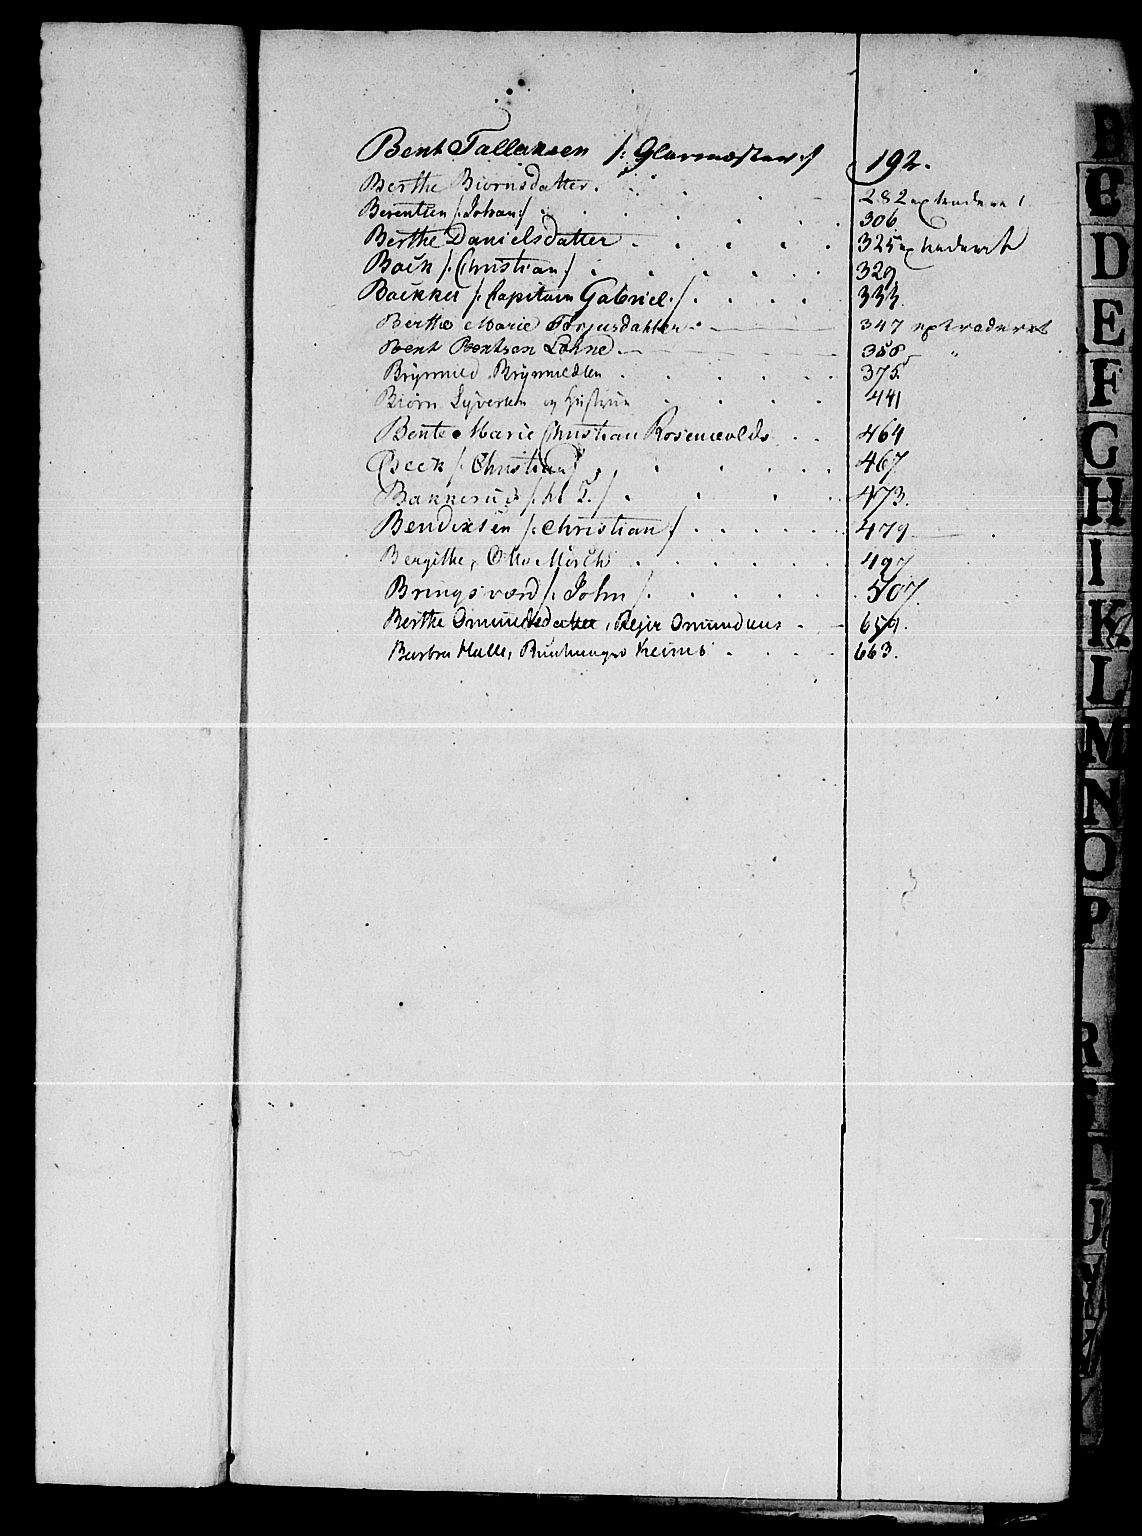 Bent Tallaksen /: Glarmæster :/ 192.
Berthe Biørnsdatter. 282 extraderet
Berentsen /: Johan :/ 306
Berthe Danielsdatter 325 extraderet
Bock /: Christian :/ 329
Boekker /: Capitain Gabriel :/ 333.
Berthe Marie Torjusdatter 347 extraderet
Bent Bentsen Lohne 358 "
Brynnild Brynnildsen 375
Biørn Syversen og Hustrue 441
Bente Marie Christian Rosenvolds 464
Beck /: Christian :/ 467
Bakkerud 473.
Bendixsen /: Christian :/ 479
Bergithe, Otto Mørchs 497
Bringsværd /: John :/ 507.
Berthe Omundsdatter, Rejer Omundsens 659.
Barbra Halle, Keims 663.
B
C
D
E
F
G
H
I
K
L
M
N
O
P
R
U